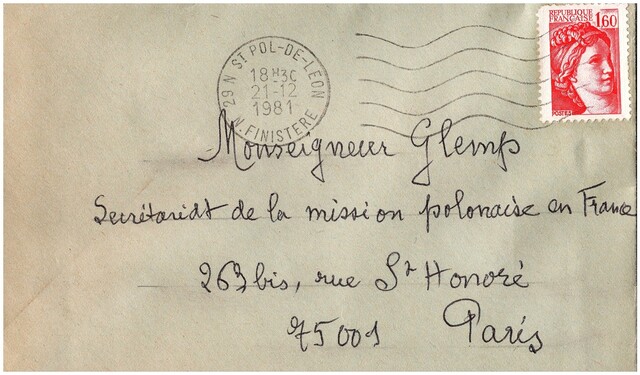 RÉPUBLIQUE
FRANÇAISE
1,60
POSTES
29 N ST POL-DE-LÉON
18H30
21-12
1981
N. FINISTÈRE
Monseigneur Glemp
Secrétariat de la mission polonaise en France
263 bis, rue St Honoré
75001 Paris